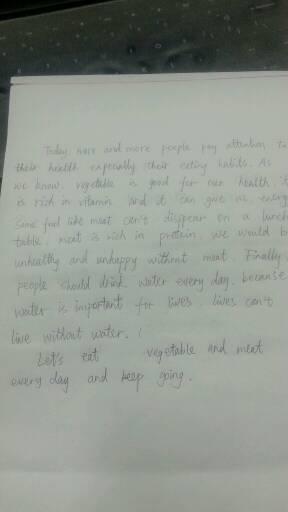 Today more and more people pay attention to
their health especially their eating habits. As
we know, vegetable is good for our health, it
is rich in vitamin and it can give us energy
Some food like meat can't disppear on a lunch
table, meat is rich in protein, we would b
unhealthy and unhappy without meat. Finally,
people should drink water every day, because
water is important for lives, lives can't
live without water.
Let's eat vegetable and meat
every day and keep going.